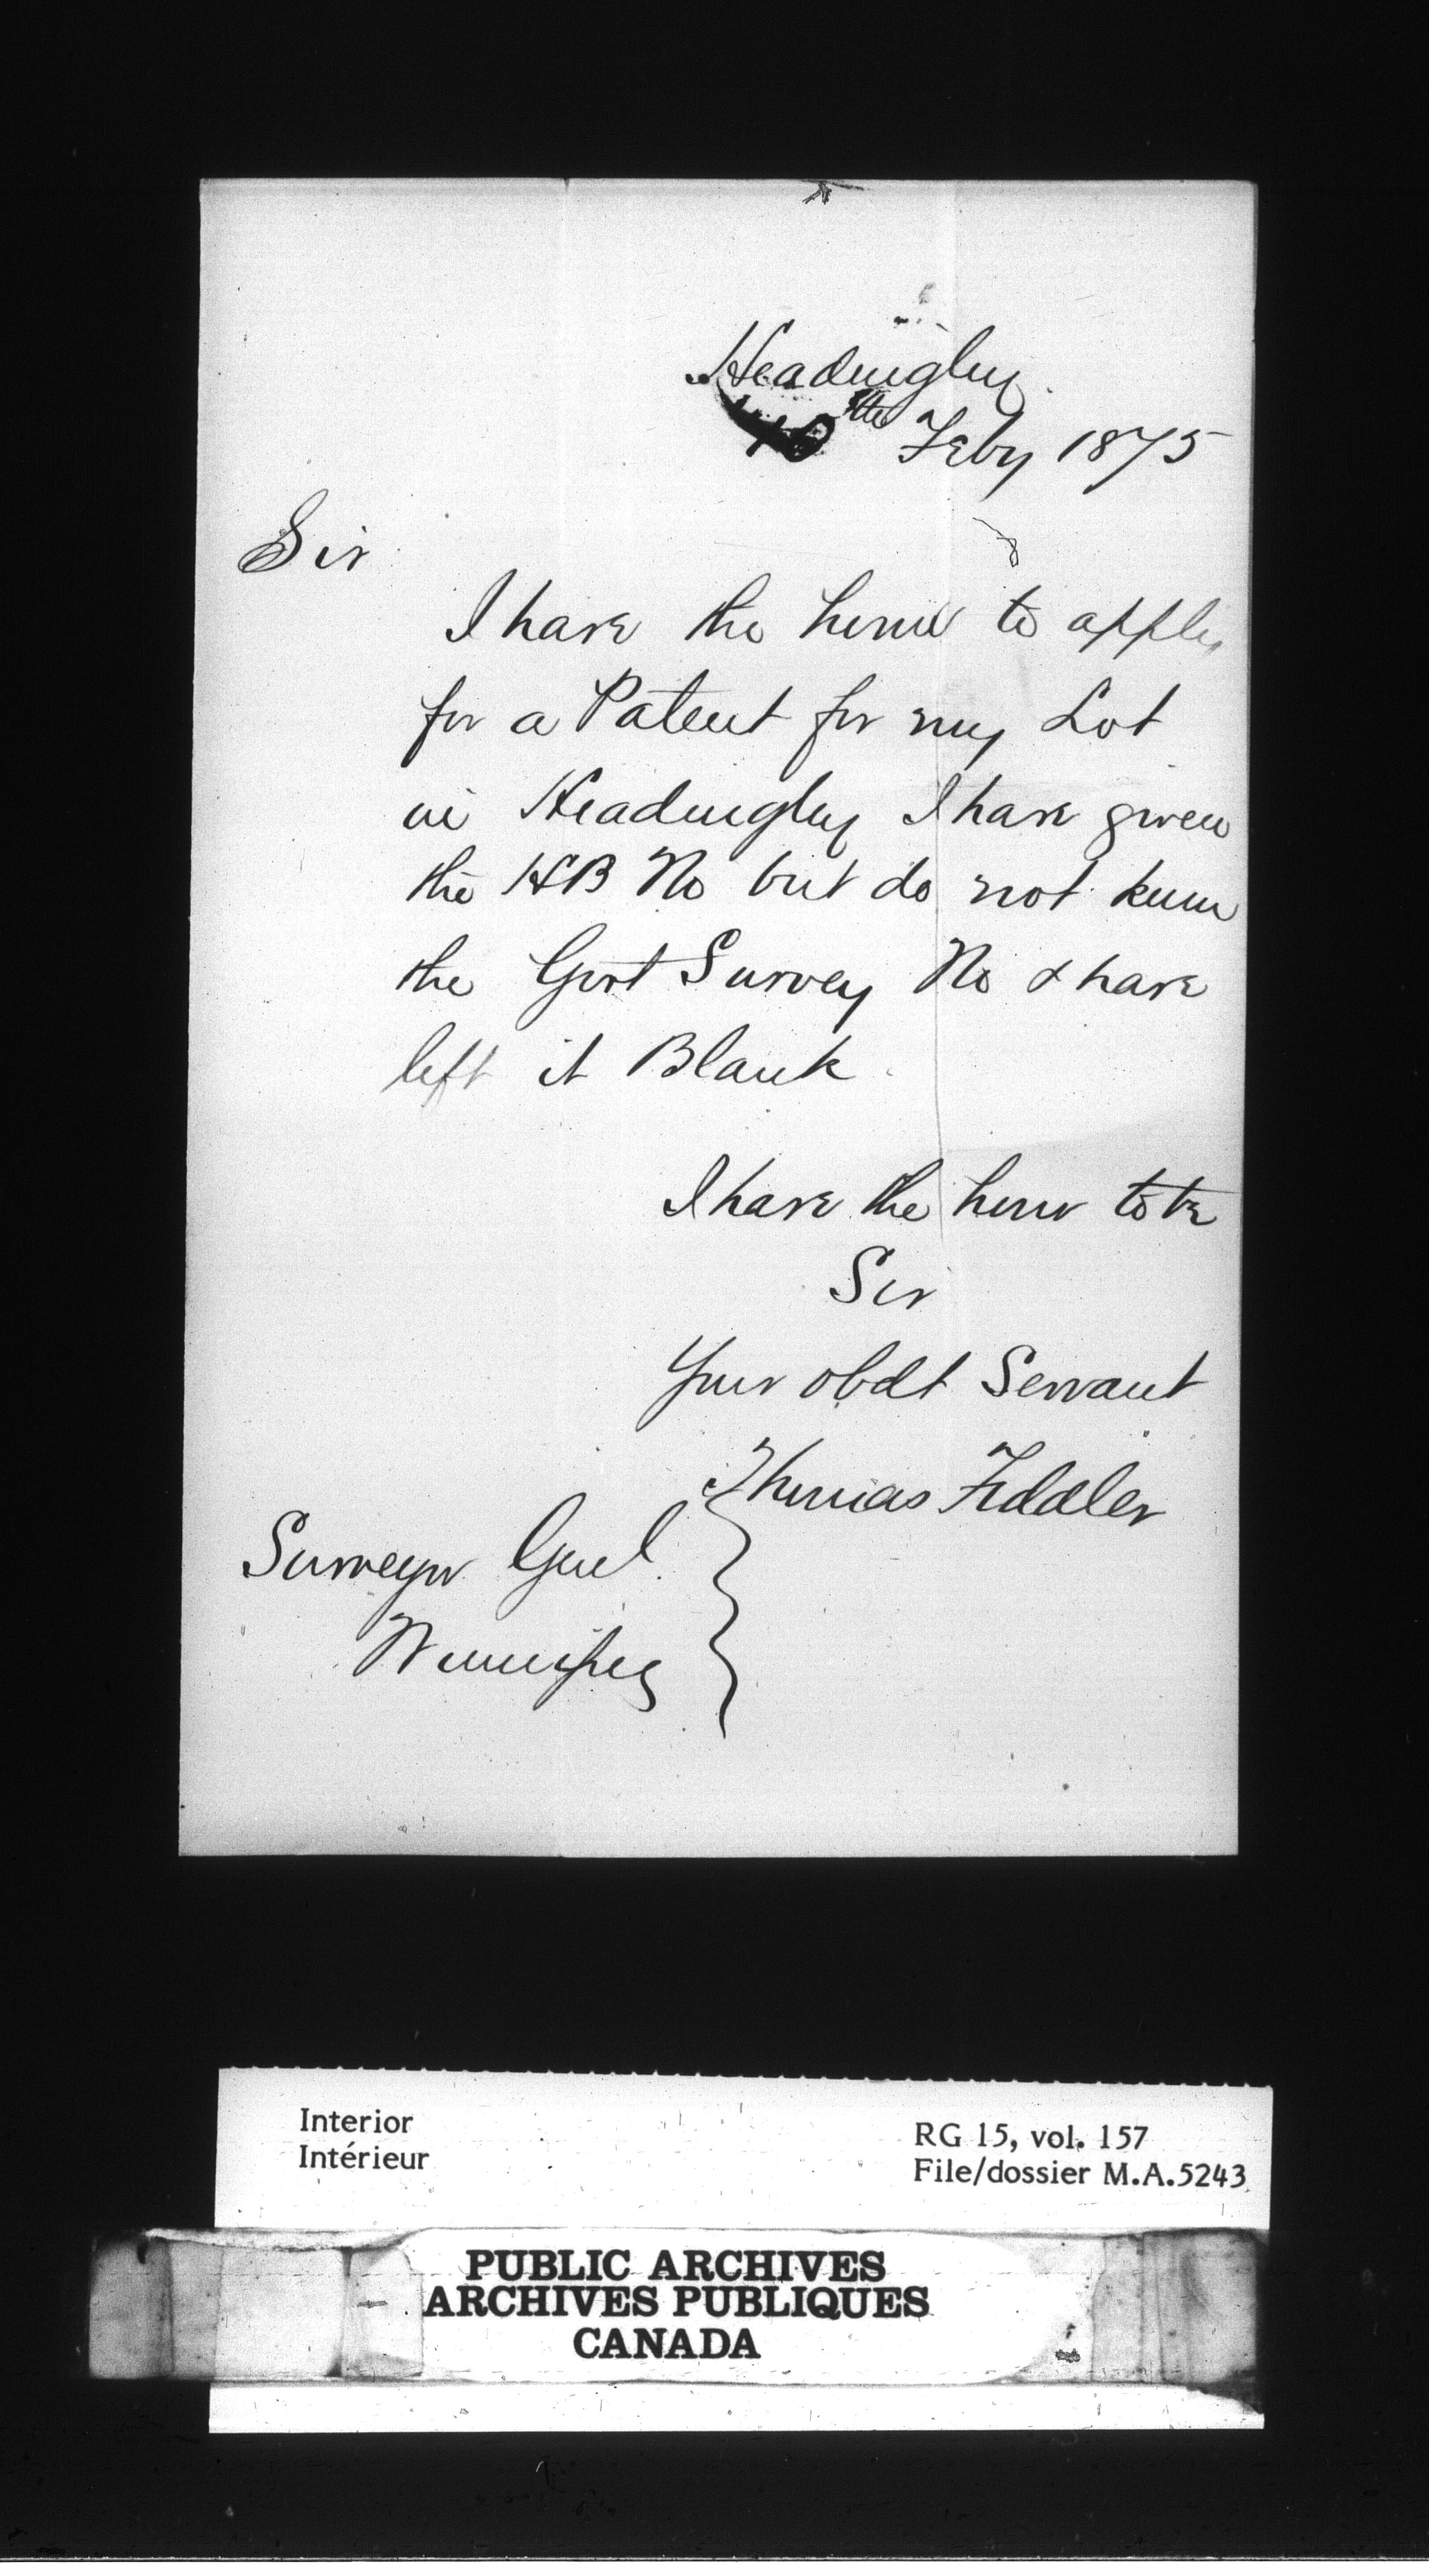 Headingley
th Feby 1875
Sir
I have the honor to apply
for a Patent for my Lot
in Headingley I have given
the HB No but do not know
the Govt Survey No & have
left it Blank.
I have the honor to be
Sir
Your obdt Servant
Thomas Fiddler
Surveyor Genl.
Winnipeg
Interior
Intérieur
RG 15, vol. 157
File/dossier M.A.5243
PUBLIC ARCHIVES
ARCHIVES PUBLIQUES
CANADA